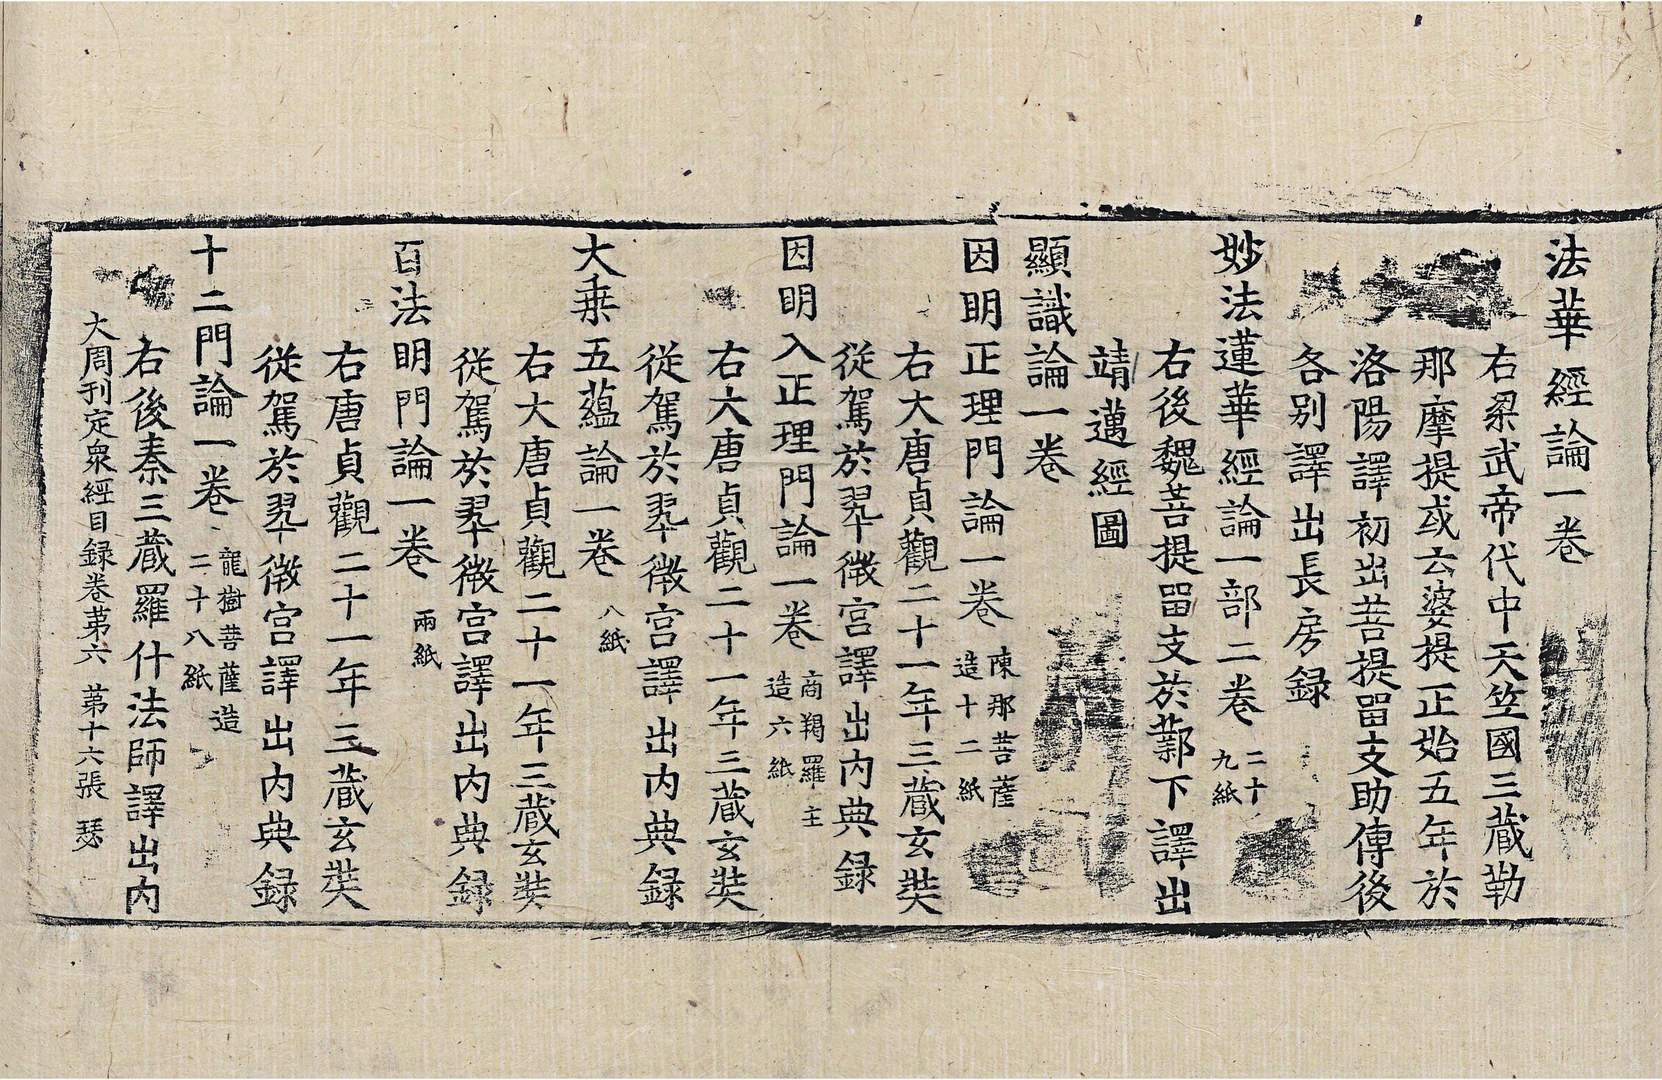 法華經論一卷
右梁武帝代中天竺國三藏勒
那摩提或云婆提正始五年於
洛陽譯初出菩提留支助傳後
各別譯出長房録
妙法蓮華經論一部二卷 二十九紙
右後魏菩提留支於鄴下譯出
靖邁經圖
顯識論一卷
因明正理門論一卷 陳那菩薩造十二紙
右大唐貞觀二十一年三藏玄奘
從駕於翠微宮譯出內典録
因明入正理門論一卷 商羯羅主造六紙
右大唐貞觀二十一年三藏玄奘
從駕於翠微宮譯出內典録
大乗五蘊論一卷 八紙
右大唐貞觀二十一年三藏玄奘
從駕於翠微宮譯出內典録
百法明門論一卷 兩紙
右唐貞觀二十一年三藏玄奘
從駕於翠微宮譯出內典録
十二門論一卷 龍樹菩薩造二十八紙
右後秦三藏羅什法師譯出內
大周刊定衆經目録卷第六 第十六張 瑟